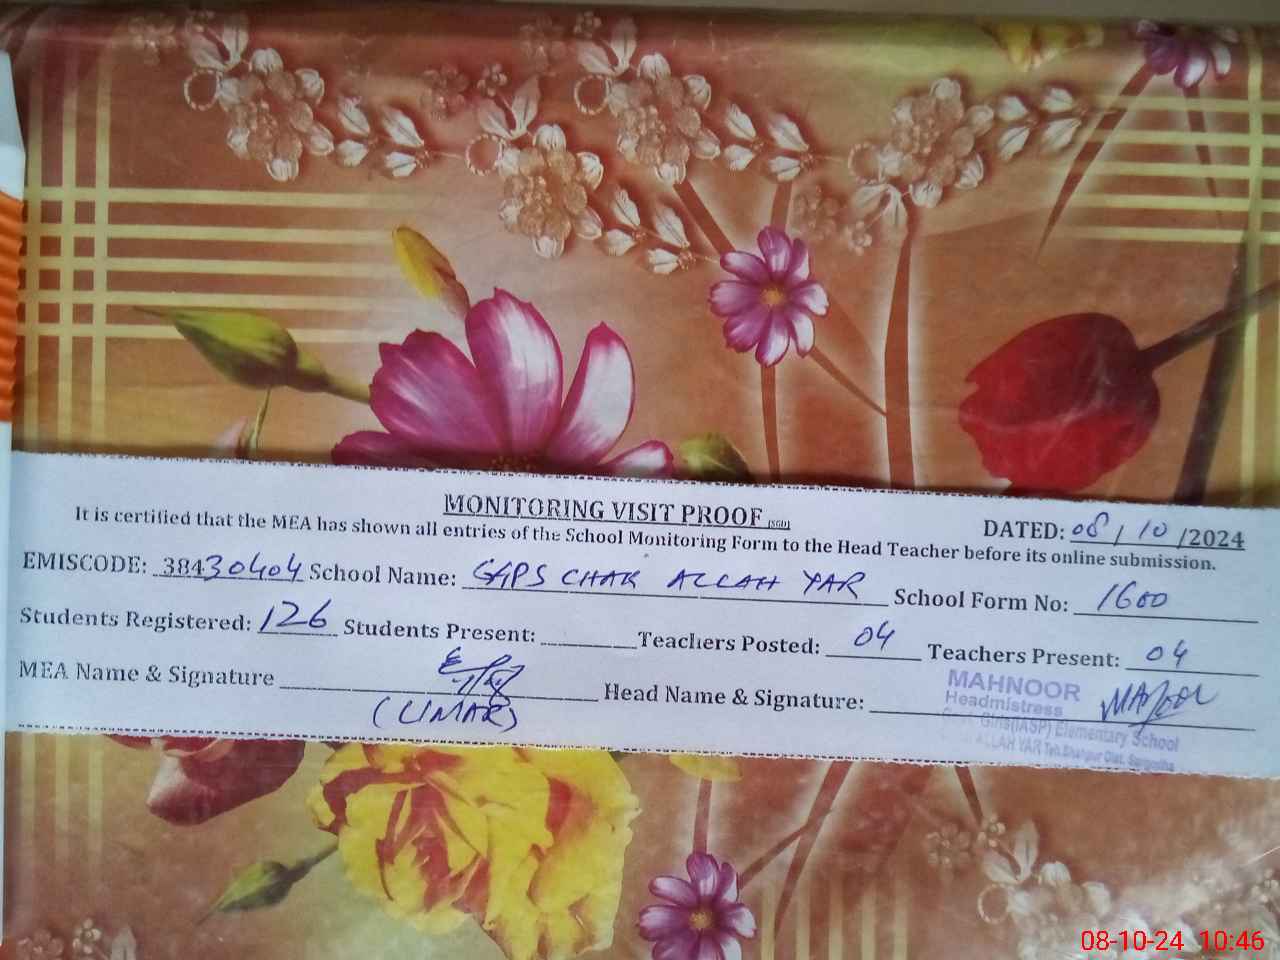 MONITORING VISIT PROOF (SGD)
DATED: 08/10/2024
It is certified that the MEA has shown all entries of the School Monitoring Form to the Head Teacher before its online submission.
EMISCODE: 38430404 School Name: GGPS CHAK ALLAH YAR School Form No: 1600
Students Registered: 126 Students Present: ________ Teachers Posted: 04 Teachers Present: 04
MEA Name & Signature ________ Head Name & Signature: ________
(UMAR)
MAHNOOR
Headmistress
Govt. Girls(IASP) Elementary School
ALLAH YAR Teh.Shahpur Dist. Sargodha
08-10-24 10:46